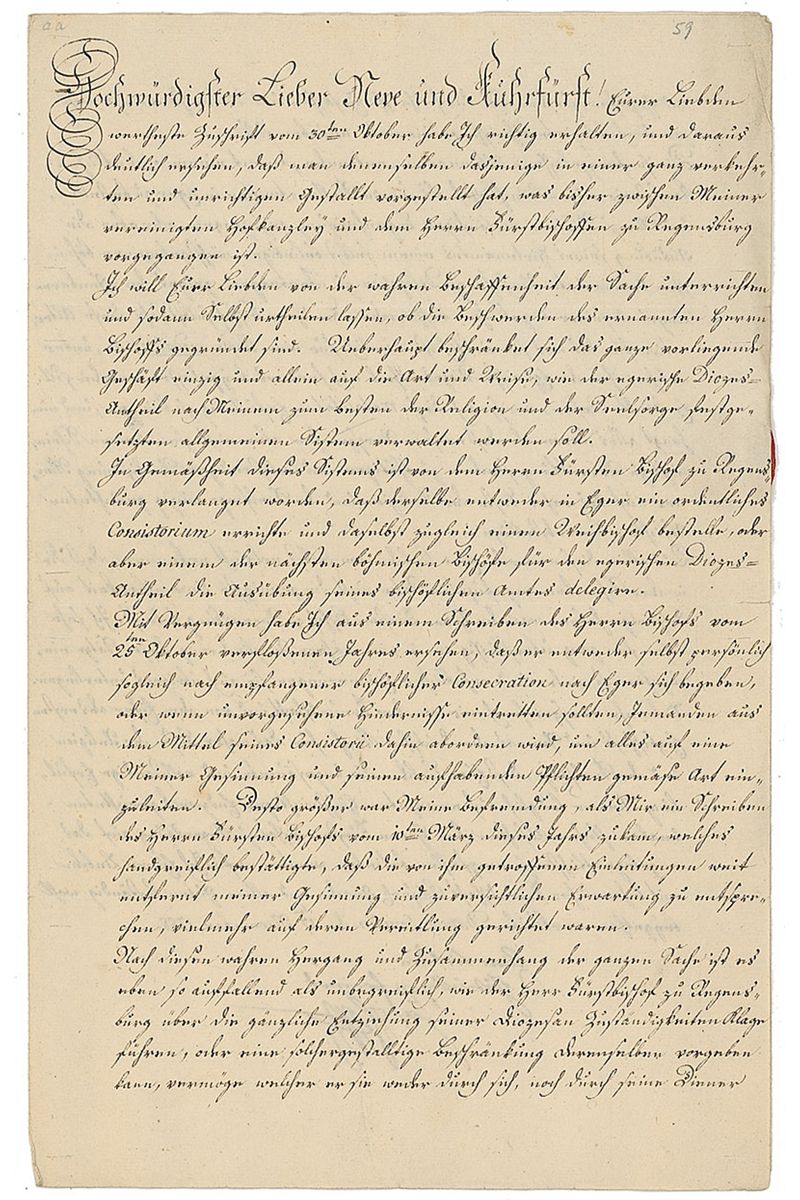 aa
59
Hochwürdigster Lieber Neve und Kuhrfürst! Eurer Liebden
wertheste Zuschrift vom 30ten Oktober habe Ich richtig erhalten, und daraus
deutlich ersehen, daß man denenselben dasjenige in einer ganz verkehr-
ten und unrichtigen Gestallt vorgestellt hat, was bisher zwischen Meiner
vereinigten Hofkanzley und dem Herrn Fürstbischoffen zu Regensburg
vorgegangen ist.
Ich will Euer Liebden von der wahren Beschaffenheit der Sache unterrichten
und sodann Selbst urtheilen lassen, ob die Beschwerden des ernannten Herrn
Bischofs gegründet sind. Ueberhaupt beschränket sich das ganze vorliegende
Geschäft einzig und allein auf die Art und Weise, wie der egerische Diozes-
Antheil nach Meinem zum Besten der Religion und der Seelsorge festge-
setzten allgemeinen Sistem verwaltet werden soll.
In Gemäßheit dieses Sistems ist von dem Herrn Fürsten Bischof zu Regens-
burg verlanget worden, daß derselbe entweder in Eger ein ordentliches
Consistorium errichte und daselbst zugleich einen Weihbischof bestelle, oder
aber einem der nächsten böhmischen Bischöfe für den egerischen Diozes-
Antheil die Ausübung seines bischöflichen Amtes delegire.
Mit Vergnügen habe Ich aus einem Schreiben des Herrn Bischofs vom
25ten Oktober verfloßenen Jahres ersehen, daß er entweder selbst persönlich
sogleich nach empfangener bischöflicher Consecration nach Eger sich begeben,
oder wenn unvorgesehene Hindernisse eintretten sollten, Jemanden aus
dem Mittel seines Consistorii dahin abordnen wird, um alles auf eine
Meiner Gesinnung und seinen aufhabenden Pflichten gemäse Art ein-
zuleiten. Desto größer war Meine Befremdung, als Mir ein Schreiben
des Herrn Fürsten Bischofs vom 10ten März dieses Jahrs zukam, welches
handgreiflich bestättigte, daß die von ihm getroffenen Einleitungen weit
entfernt meiner Gesinnung und zuversichtlichen Erwartung zu entspre-
chen, vielmehr auf deren Vereitlung gerichtet waren.
Nach diesen wahren Hergang und Zusammenhang der ganzen Sache ist es
eben so auffallend als unbegreiflich, wie der Herr Fürstbischof zu Regens-
burg über die gänzliche Entziehung seiner Diozesan Zuständigkeiten Klage
führen, oder eine solchergestalltige Beschränkung derenselben vorgeben
kann, vermöge welcher er sie weder durch sich, noch durch seine Diener